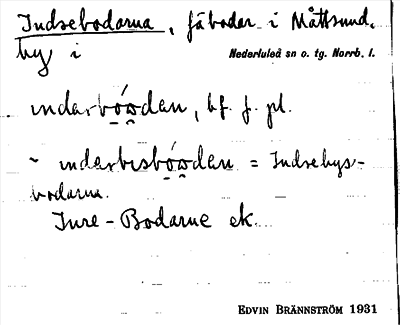 Indsebodarna, fäbodar i Måttsund,
by i Nederluleå sn o. tg. Norrb. l.
ındarbóω̂dan, bf. f. pl.
~ ındarbısbóω̂dan = Indsebys-
bodarna.
Inre-Bodarne ek.
EDVIN BRÄNNSTRÖM 1931